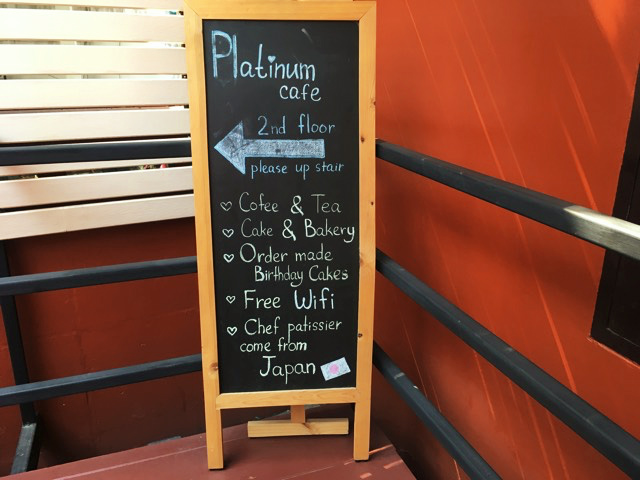 Platinum
cafe
2nd floor
please up stair
Cofee & Tea
Cake & Bakery
Order made
Birthday Cakes
Free Wifi
Chef patissier
come from
Japan